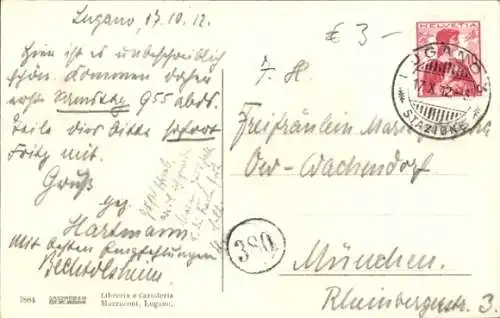 Lugano, 17.10.12.
Hier ist es unbeschreiblich
schön. Kommen daher
erst Samstag 9 55 abds.
Teile dies bitte sofort
Fritz mit.
Gruß
gez.
Hartmann.
Mit besten Empfehlungen
Bechtolsheim.
€ 3 -
HELVETIA
LUGANO
17.X.12
STAZIONE
I. H.
Freifräulein Marie
Ow-Wachendorf
380
München.
Rheinbergerstr. 3.
7864
Libreria e Cartoleria
Marzuconi, Lugano.